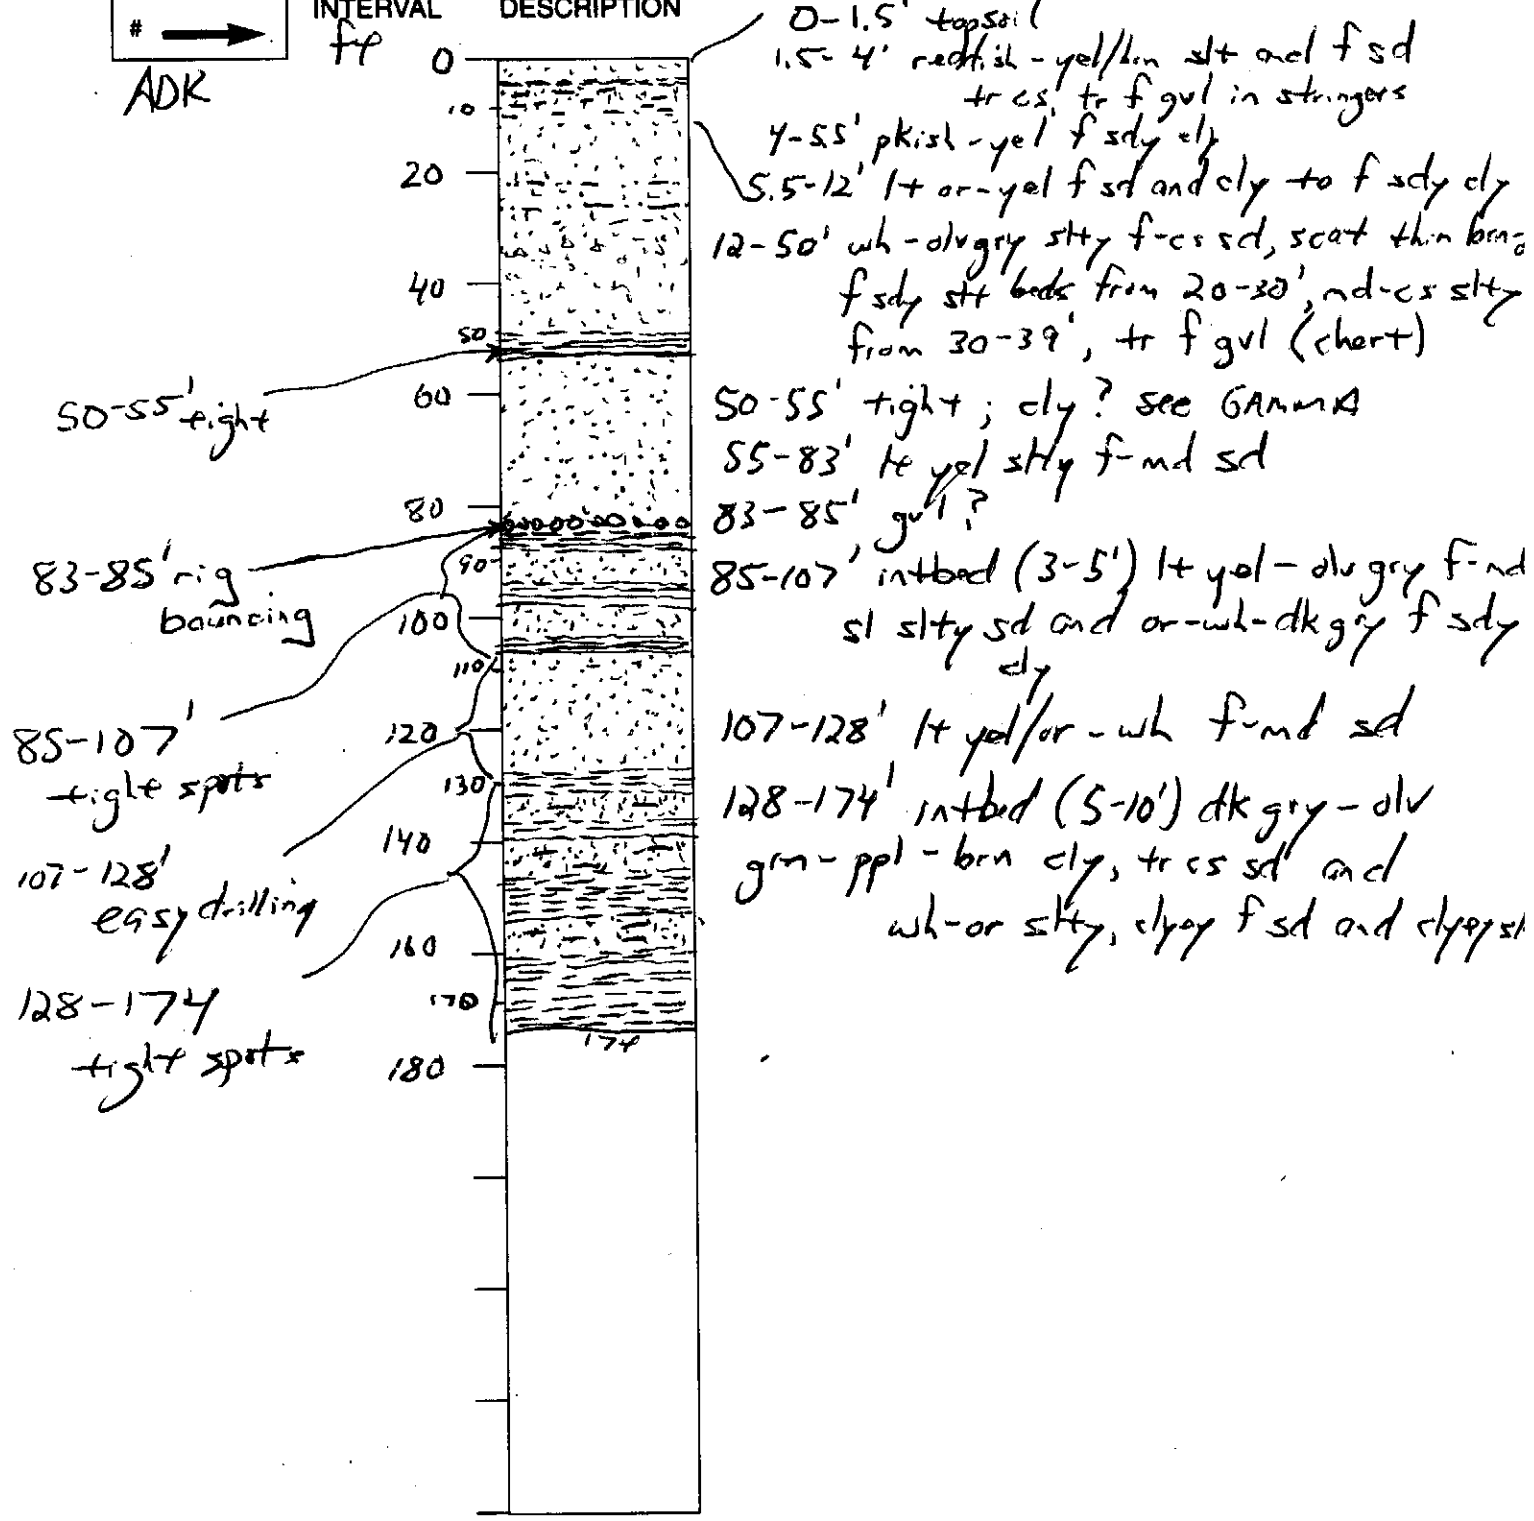 INTERVAL DESCRIPTION
#
ft
ADK
0
10
20
40
50
60
80
90
100
110
120
130
140
160
170
174
180
50-55' tight
83-85' rig
bouncing
85-107'
tight spots
107-128'
easy drilling
128-174
tight spots
0-1.5' topsoil
1.5-4' reddish-yel/brn slt and f sd
tr cs, tr f gvl in stringers
4-5.5' pkish-yel f sdy cly
5.5-12' lt or-yel f sd and cly to f sdy cly
12-50' wh-olvgry slty f-cs sd, scat thin brn-
f sdy slt beds from 20-30', md-cs slty
from 30-39', tr f gvl (chert)
50-55' tight; cly? see GAMMA
55-83' lt yel slty f-md sd
83-85' gvl?
85-107' intbed (3-5') lt yel-olv gry f-md
sl slty sd and or-wh-dk gry f sdy
cly
107-128' lt yel/or-wh f-md sd
128-174' intbed (5-10') dk gry-olv
grn-ppl-brn cly, tr cs sd and
wh-or slty, clyey f sd and clyey